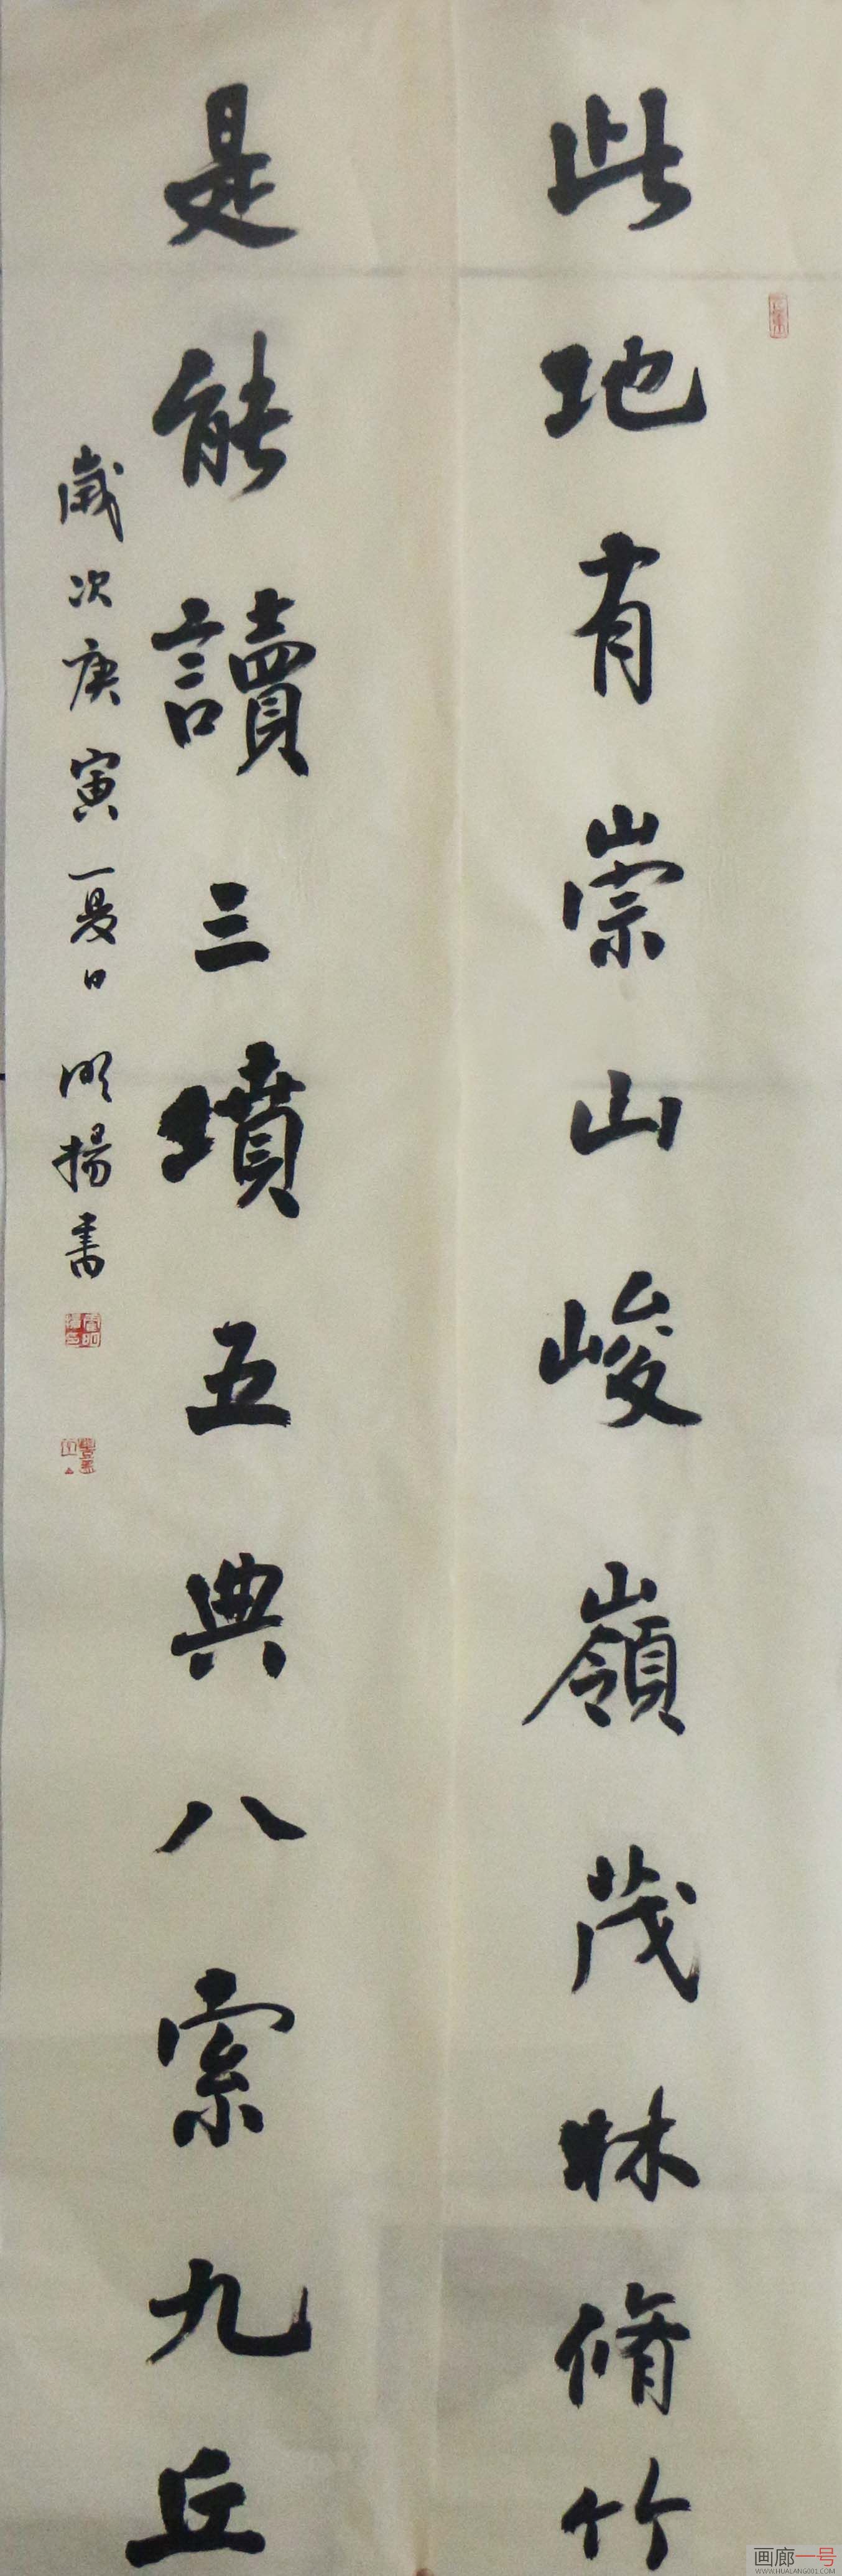 此地有崇山峻嶺茂林脩竹
是能讀三墳五典八索九丘
歲次庚寅夏日明揚書
画廊一号
WWW.HUALANG001.COM